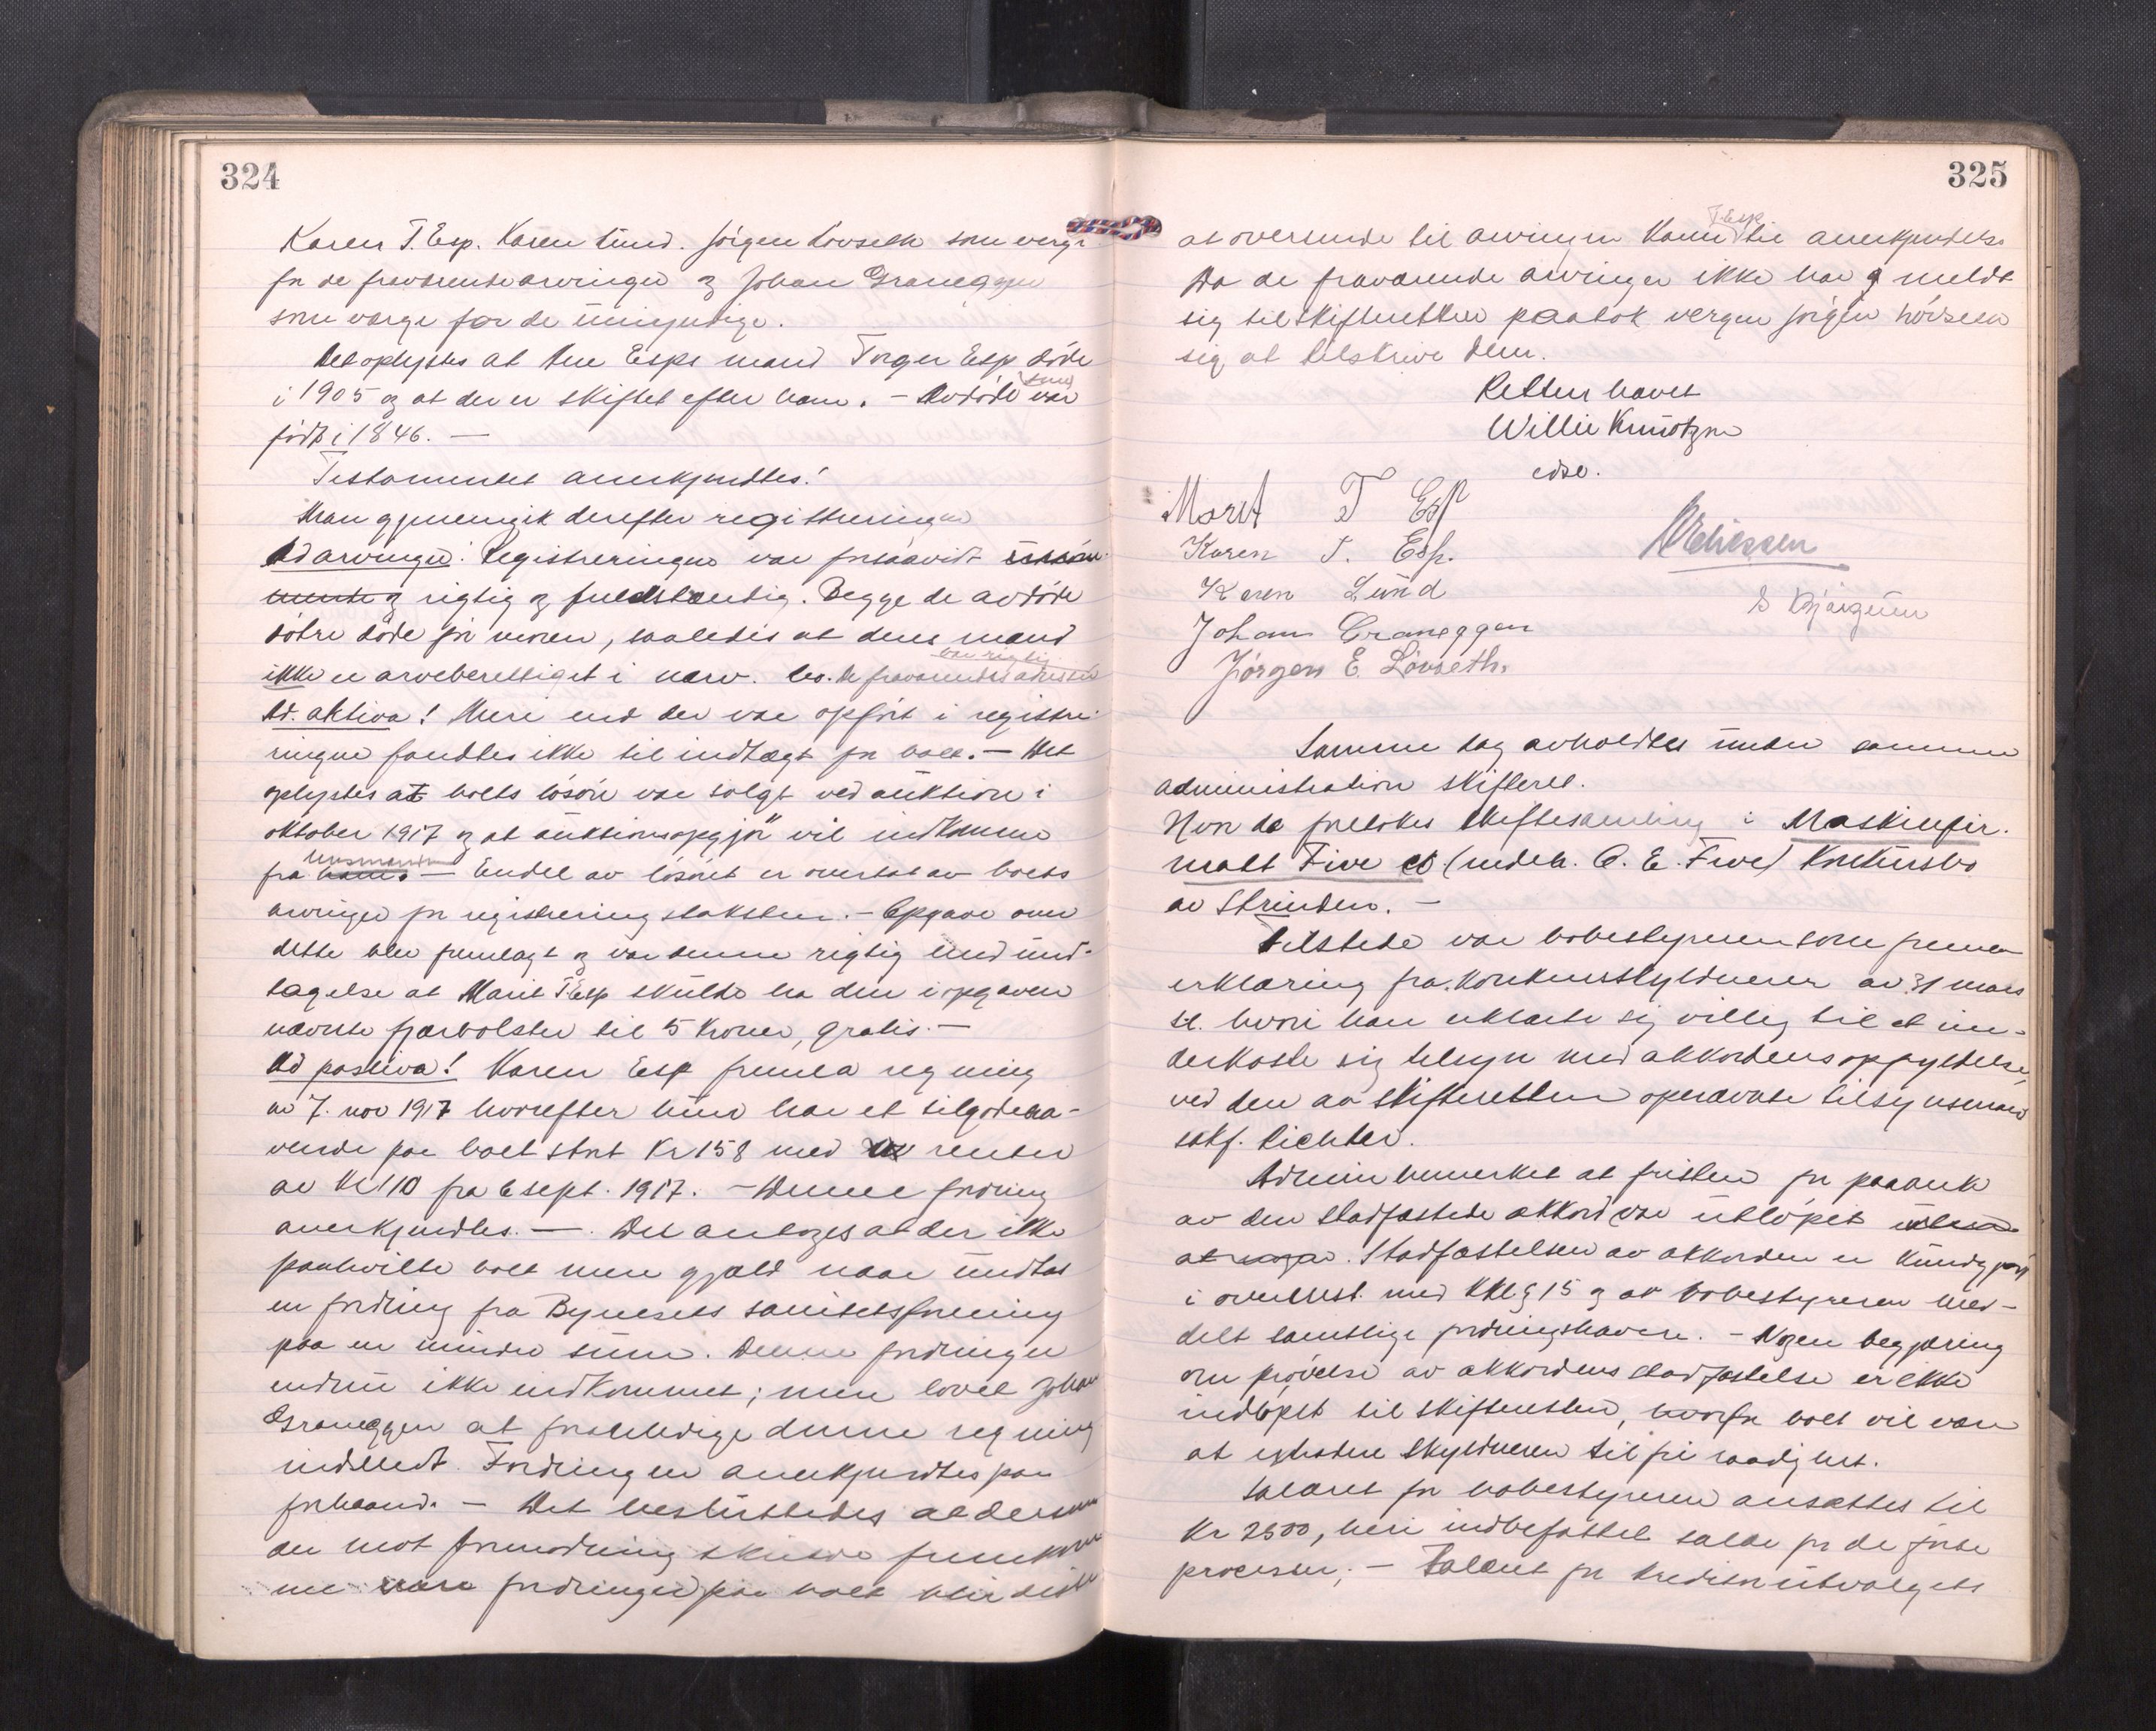 324
Karen T. Esp. Karen Lund. Jörgen Lövseth som verge
for de fraværende arvinger og Johan Graneggen
som verge for de umyndige.
Det oplystes at Ane Esps mand Torger Esp döde
i 1905 og at der er skiftet efter ham. — Avdöde som var
födt i 1846. —
Testamentet anerkjendtes!
Man gjennemgik derefter registreringen
Ad arvinger: Registreringen var forsaavidt
og rigtig og fuldstændig. Begge de avdöde
döbre döde för moren, saaledes at deres mand
ikke er arveberettiget i nærv. bo. De fraværendes adresse var rigtig
Ad. aktiva! Mere end der var opfört i registre-
ringen fandtes ikke til indtægt for boet. — Det
oplystes at boets lösöre var solgt ved auktion i
oktober 1917 og at auktionsopgjör vil indkomme
fra lensmanden — Endel av lösöret er overtat av boets
arvinger for registreringstaksten. — Opgave over
dette blev fremlagt og var denne rigtig med und-
tagelse at Marit T Esp skulde ha den i opgaven
nævnte fjærbolster til 5 kroner, gratis. —
Ad passiva! Karen Esp fremla regning
av 7. nov 1917 hvorefter hun har et tilgodeha-
vende paa boet stort Kr 158 med renter
av Kr 110 fra 6 sept. 1917. — Denne fordring
anerkjendtes. — Det antoges at der ikke
paahvilte boet mere gjæld naar undtas
en fordring fra Bynesets sanitetsforening
paa en mindre sum. Denne fordring er
endnu ikke indkommet; men lovet Johan
Graneggen at foranledige denne regning
indsendt. Fordringen anerkjendtes paa
forhaand. — Det besluttedes at dersom
der mot formodning skulde fremkom-
me flere fordringer paa boet blir disse
325
at oversende til arvingen Karen T. Esp til anerkjendelse
Da de fraværende arvinger ikke har meldt
sig til skifteretten paatok vergen Jörgen Lövseth
sig at tilskrive dem.
Retten hævet
Willie Knutzen
edsv.
Marit T Esp
Karen T. Esp.
Karen Lund
Johan Graneggen
Jørgen E. Løvseth.
Samme dag avholdtes under samme
administration skifteret.
Hvor da foretokes skiftesamling i Maskinfir-
maet Five & Co (indeh. O. E. Five) konkursbo
av Strinden. —
Tilstede var bobestyreren som fremla
erklæring fra konkursskyldneren av 31 mars
sl. hvori han erklærte sig villig til at un-
derkaste sig tilsyn med akkordens opfyldelse,
ved den av skifteretten opnævnte tilsynsmand
sakf. Richter.
Admin bemerket at fristen for paaanke
av den stadfæstede akkord var utlöpet
Stadfæstelsen av akkorden er kundgjort
i overensst. med KKL § 15 og av bobestyreren med-
delt samtlige fordringshavere. — Nogen begjæring
om prövelse av akkordens stadfæstelse er ikke
indlöpet til skifteretten, hvorfor boet vil være
at extradere skyldneren til fri raadighet.
Salæret for bobestyreren ansættes til
Kr 2500, heri indbefattet salær for de förte
processer; — Salæret for kreditorutvalgets